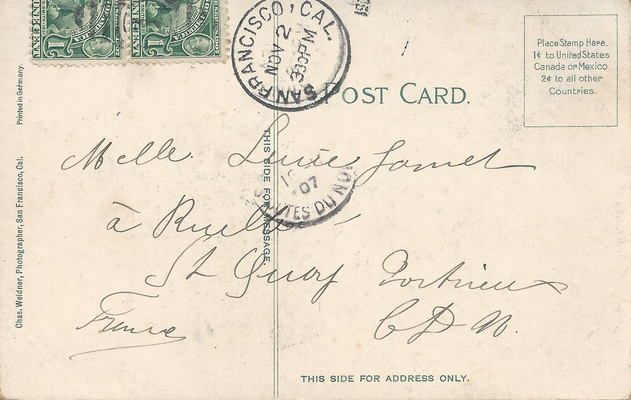 SAN FRANCISCO, CAL.
NOV 2
3 30 PM
POST CARD.
Place Stamp Here.
1¢ to United States
Canada or Mexico
2¢ to all other
Countries.
Printed in Germany.
Chas. Weidner, Photographer, San Francisco, Cal.
THIS SIDE FOR MESSAGE.
Melle Jamet
07
TES DU NO
à
St Quay Portrieux
C D N.
France
THIS SIDE FOR ADDRESS ONLY.